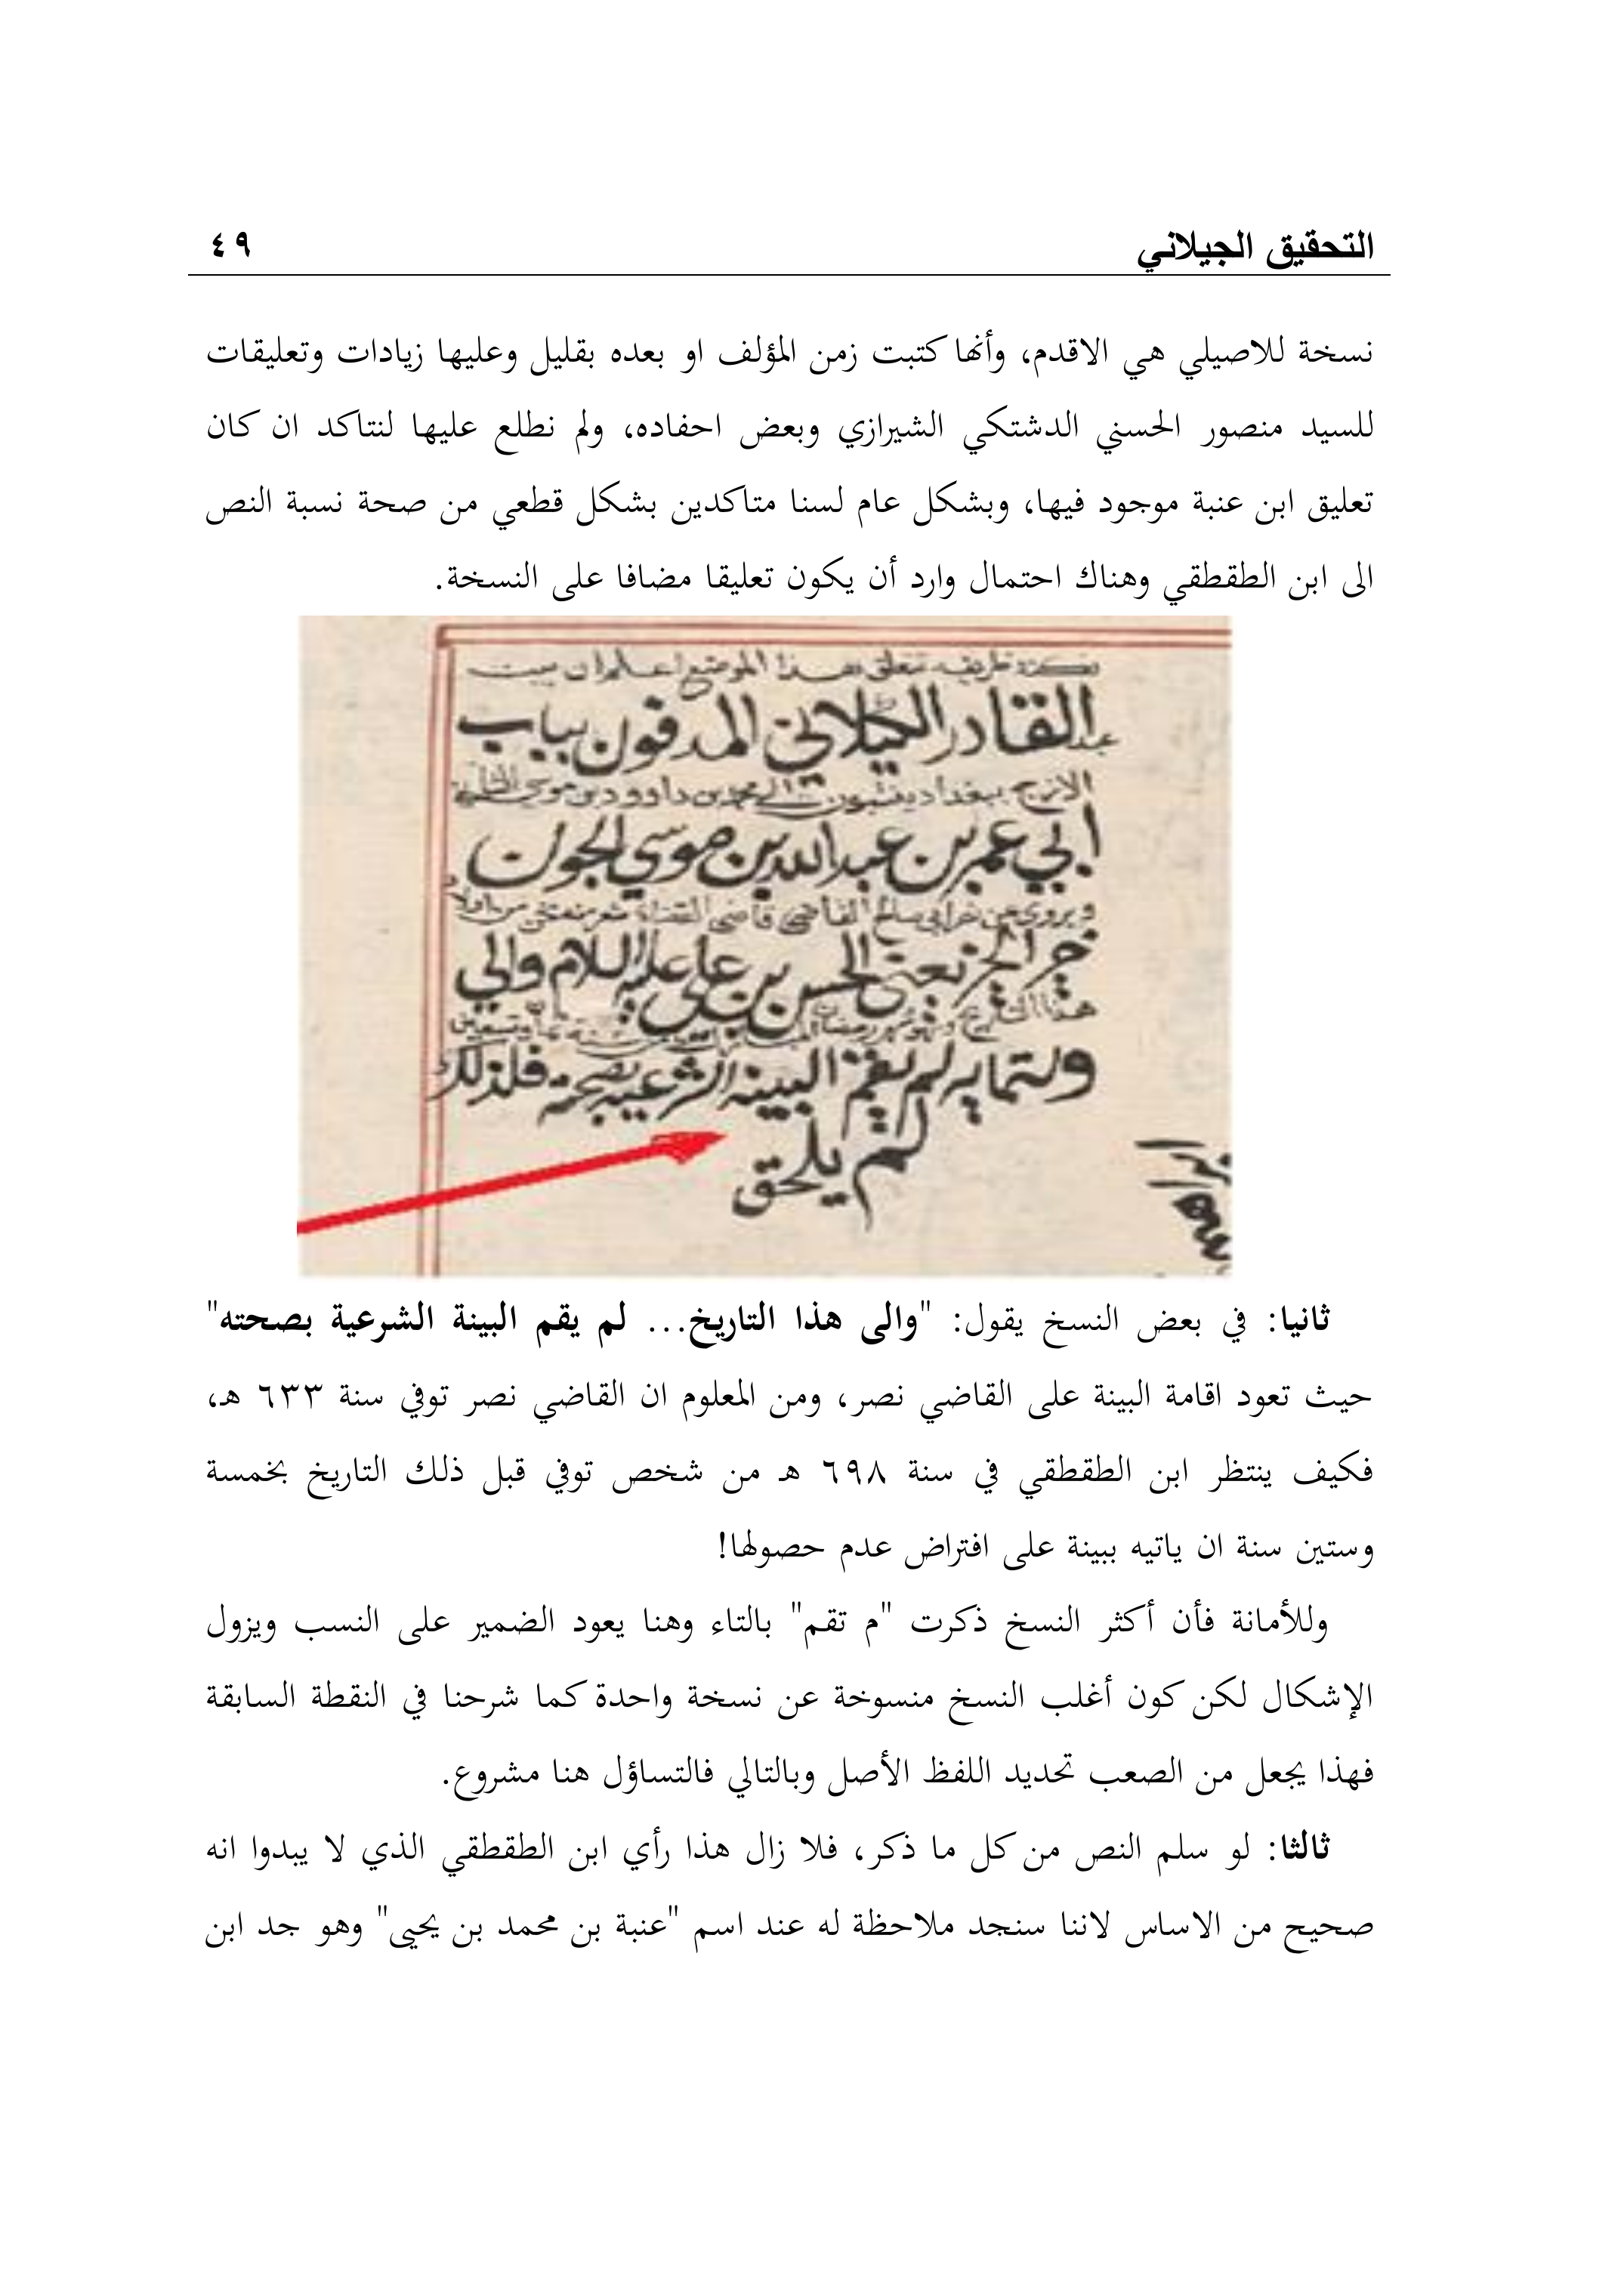 التحقيق الجيلاني ٤٩
نسخة للاصيلي هي الاقدم، وأنها كتبت زمن المؤلف او بعده بقليل وعليها زيادات وتعليقات
للسيد منصور الحسني الدشتكي الشيرازي وبعض احفاده، ولم نطلع عليها لنتاكد ان كان
تعليق ابن عنبة موجود فيها، وبشكل عام لسنا متاكدين بشكل قطعي من صحة نسبة النص
الى ابن الطقطقي وهناك احتمال وارد أن يكون تعليقا مضافا على النسخة.
نكتة ظريفه تتعلق بهذا الموضع اعلم ان بيت
عبد القادر الكيلاني المدفون بباب
الازج ببغداد ينتسبون الى محمد بن داوود بن موسى
ابي عمر بن عبد الله بن موسي الجون
القاضي قاضي القضاة
الحسن بن علي عليه السلام والي
هذا التاريخ وهو شهر رمضان
وستمايه لم يقم البينه الشرعيه بصحته فلذلك
لم يلحق
ثانيا: في بعض النسخ يقول: "والى هذا التاريخ... لم يقم البينة الشرعية بصحته"
حيث تعود اقامة البينة على القاضي نصر، ومن المعلوم ان القاضي نصر توفي سنة ٦٣٣ هـ،
فكيف ينتظر ابن الطقطقي في سنة ٦٩٨ هـ من شخص توفي قبل ذلك التاريخ بخمسة
وستين سنة ان ياتيه ببينة على افتراض عدم حصولها!
وللأمانة فأن أكثر النسخ ذكرت "م تقم" بالتاء وهنا يعود الضمير على النسب ويزول
الإشكال لكن كون أغلب النسخ منسوخة عن نسخة واحدة كما شرحنا في النقطة السابقة
فهذا يجعل من الصعب تحديد اللفظ الأصل وبالتالي فالتساؤل هنا مشروع.
ثالثا: لو سلم النص من كل ما ذكر، فلا زال هذا رأي ابن الطقطقي الذي لا يبدوا انه
صحيح من الاساس لاننا سنجد ملاحظة له عند اسم "عنبة بن محمد بن يحيى" وهو جد ابن